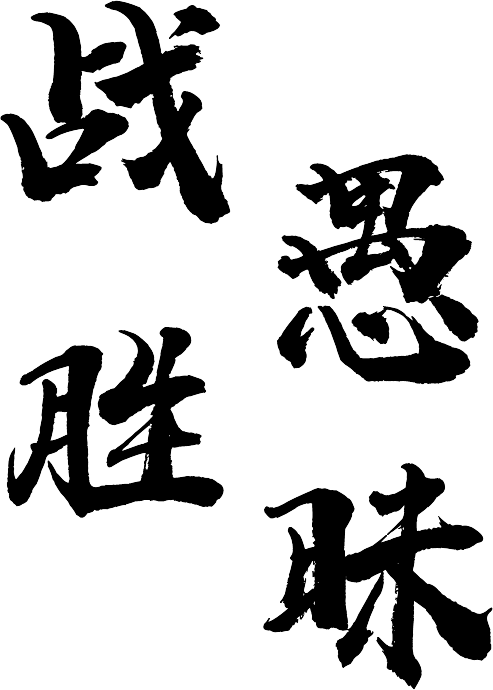 战胜
愚昧